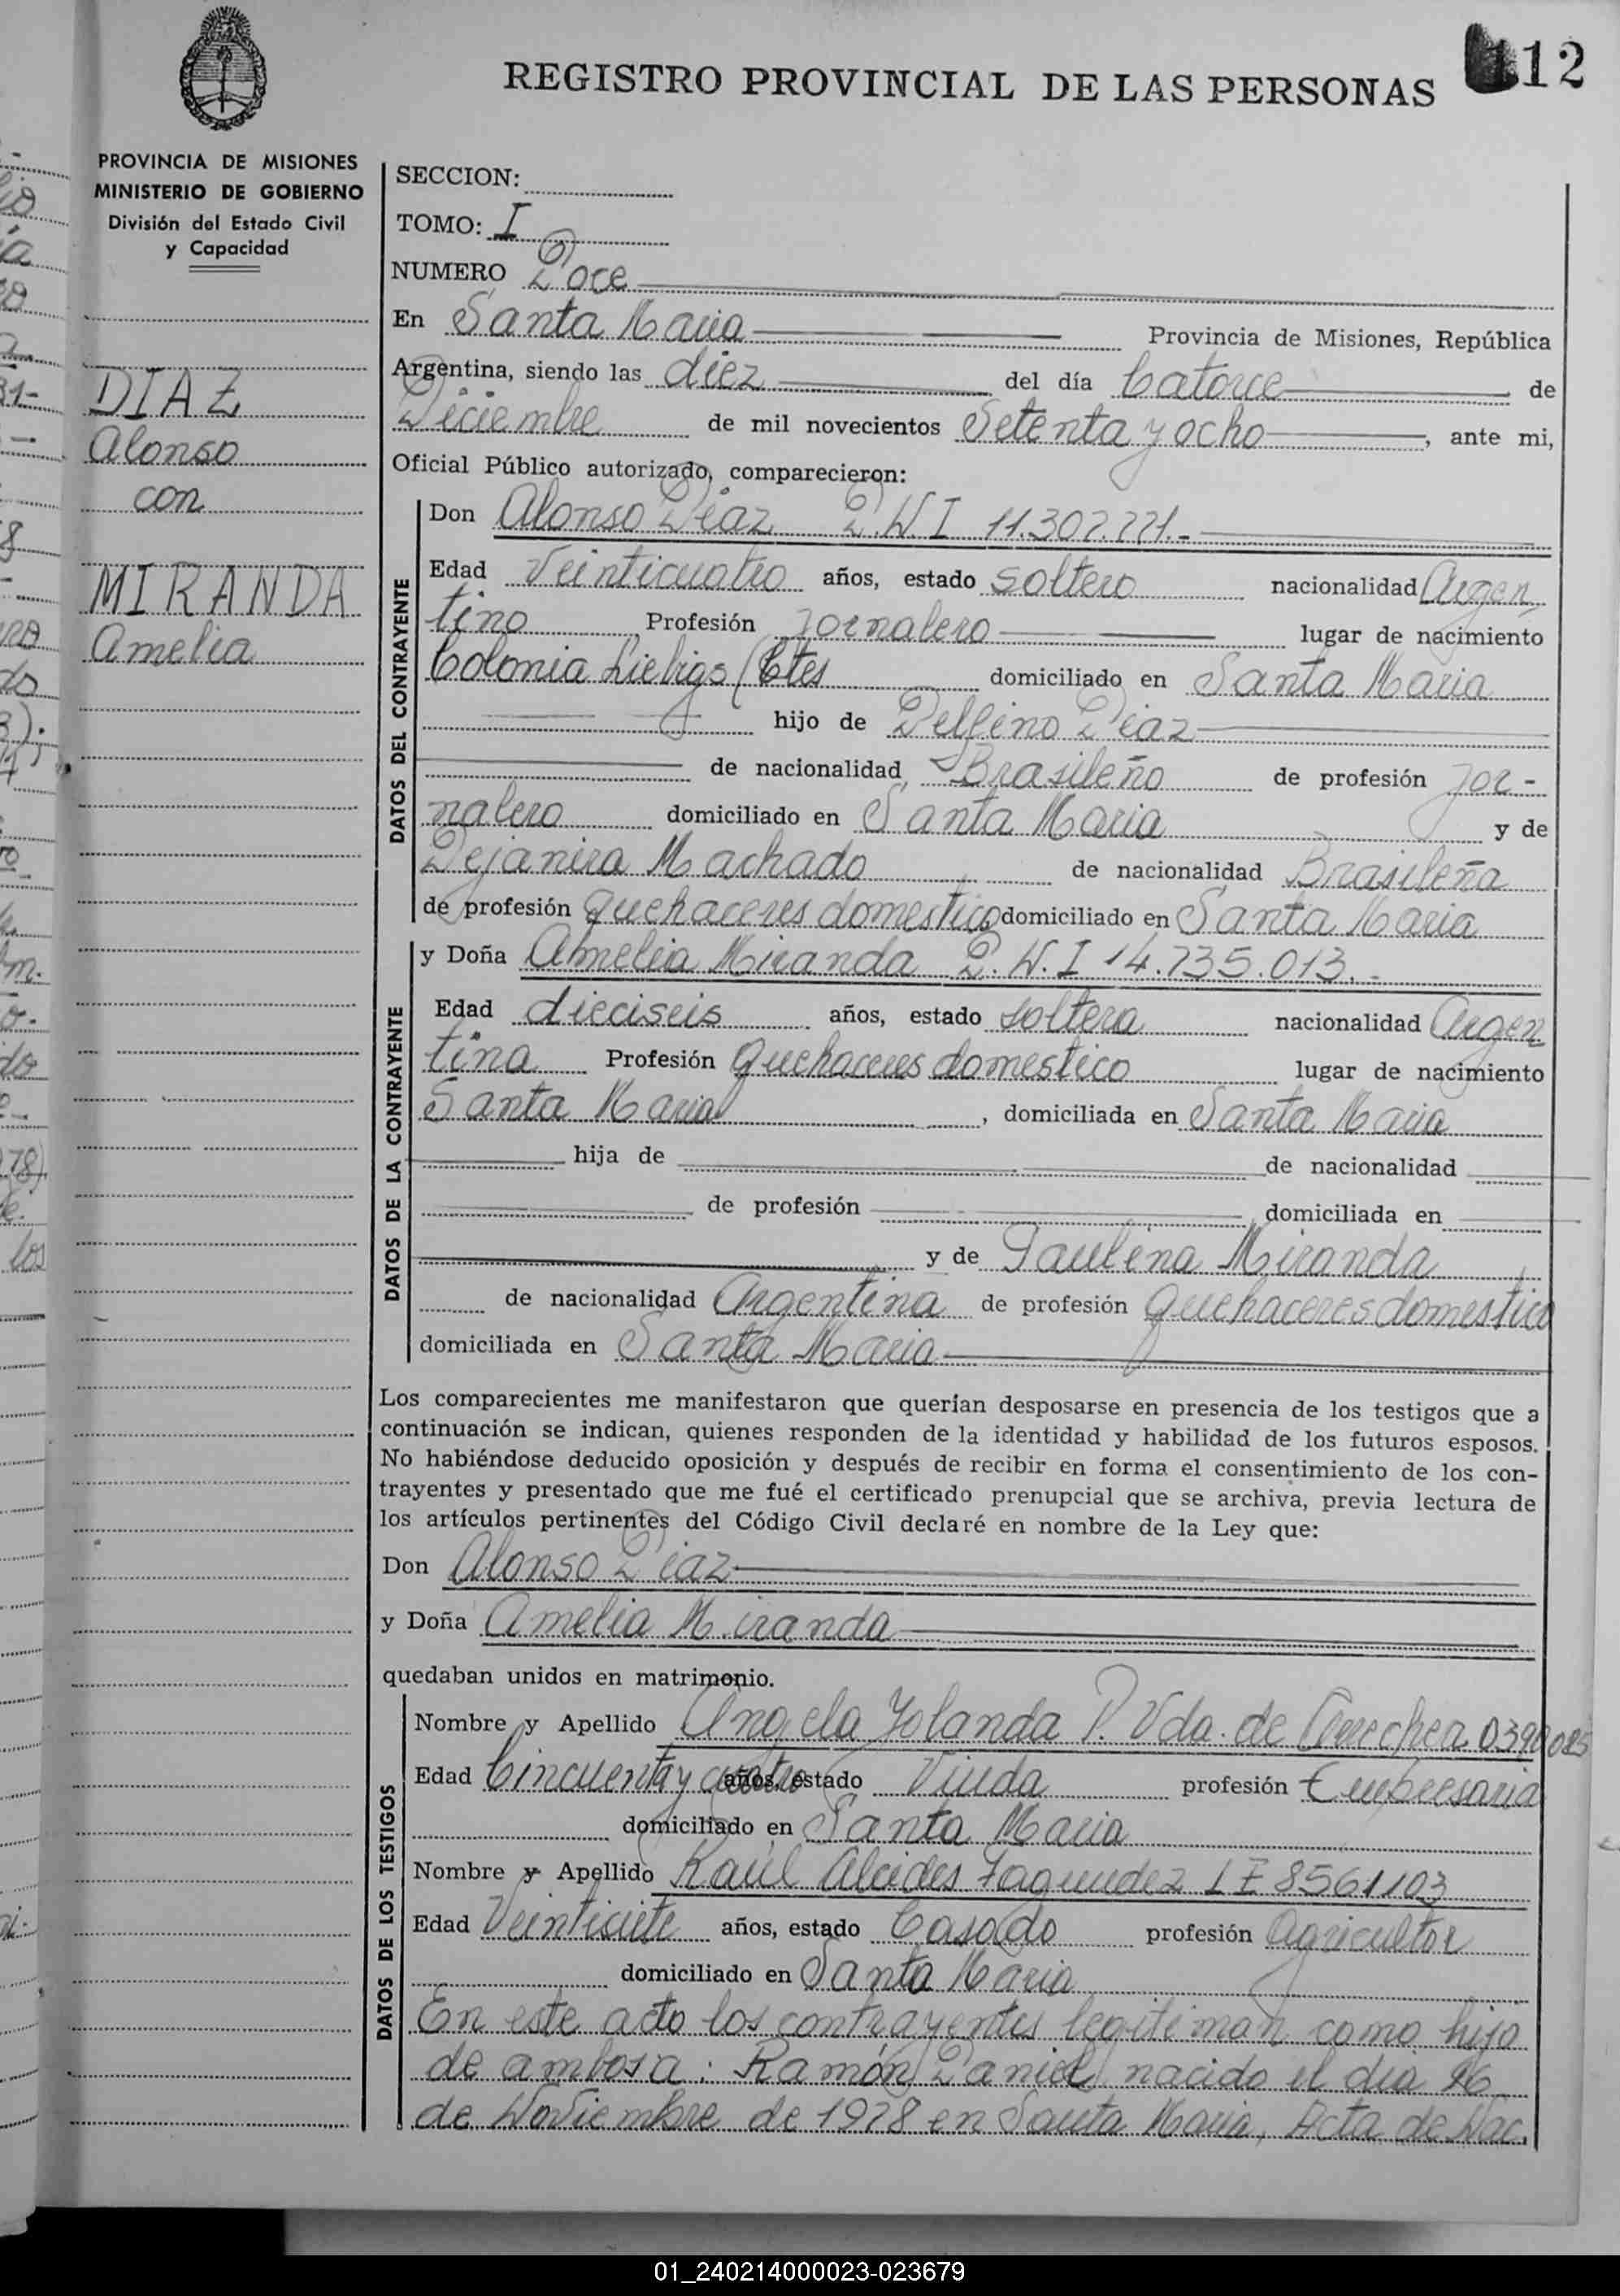 112
REGISTRO PROVINCIAL DE LAS PERSONAS
PROVINCIA DE MISIONES
MINISTERIO DE GOBIERNO
División del Estado Civil
y Capacidad
DIAZ
Alonso
con
MIRANDA
Amelia
SECCION:
TOMO: I
NUMERO Doce
En Santa Maria Provincia de Misiones, República
Argentina, siendo las diez del día Catorce de
Diciembre de mil novecientos Setenta y ocho, ante mi,
Oficial Público autorizado, comparecieron:
DATOS DEL CONTRAYENTE
Don Alonso Diaz D.N.I 11.307.771.-
Edad Veinticuatro años, estado soltero nacionalidad Argen
tino Profesión Jornalero lugar de nacimiento
Colonia Liebigs (Ctes domiciliado en Santa Maria
hijo de Delfino Diaz
de nacionalidad Brasileño de profesión Jor-
nalero domiciliado en Santa Maria y de
Dejanira Machado de nacionalidad Brasileña
de profesión quehaceres domestico domiciliado en Santa Maria
DATOS DE LA CONTRAYENTE
y Doña Amelia Miranda D.N.I 14.735.013.-
Edad dieciseis años, estado soltera nacionalidad Argen
tina Profesión quehaceres domestico lugar de nacimiento
Santa Maria, domiciliada en Santa Maria
hija de de nacionalidad
de profesión domiciliada en
y de Paulina Miranda
de nacionalidad Argentina de profesión quehaceres domestico
domiciliada en Santa Maria
Los comparecientes me manifestaron que querían desposarse en presencia de los testigos que a
continuación se indican, quienes responden de la identidad y habilidad de los futuros esposos.
No habiéndose deducido oposición y después de recibir en forma el consentimiento de los con-
trayentes y presentado que me fué el certificado prenupcial que se archiva, previa lectura de
los artículos pertinentes del Código Civil declaré en nombre de la Ley que:
Don Alonso Diaz
y Doña Amelia Miranda
quedaban unidos en matrimonio.
DATOS DE LOS TESTIGOS
Nombre y Apellido Angela Yolanda P. Vda. de
Edad Cincuenta y cuatro años, estado Viuda profesión Empresaria
domiciliado en Santa Maria
Nombre y Apellido Raúl Alcides Fagundez LE 8561103
Edad Veintisiete años, estado Casado profesión Agricultor
domiciliado en Santa Maria
En este acto los contrayentes legitiman como hijo
de ambosa: Ramón Daniel nacido el dia 16
de Noviembre de 1978 en Santa Maria, Acta de Nac.
01_240214000023-023679